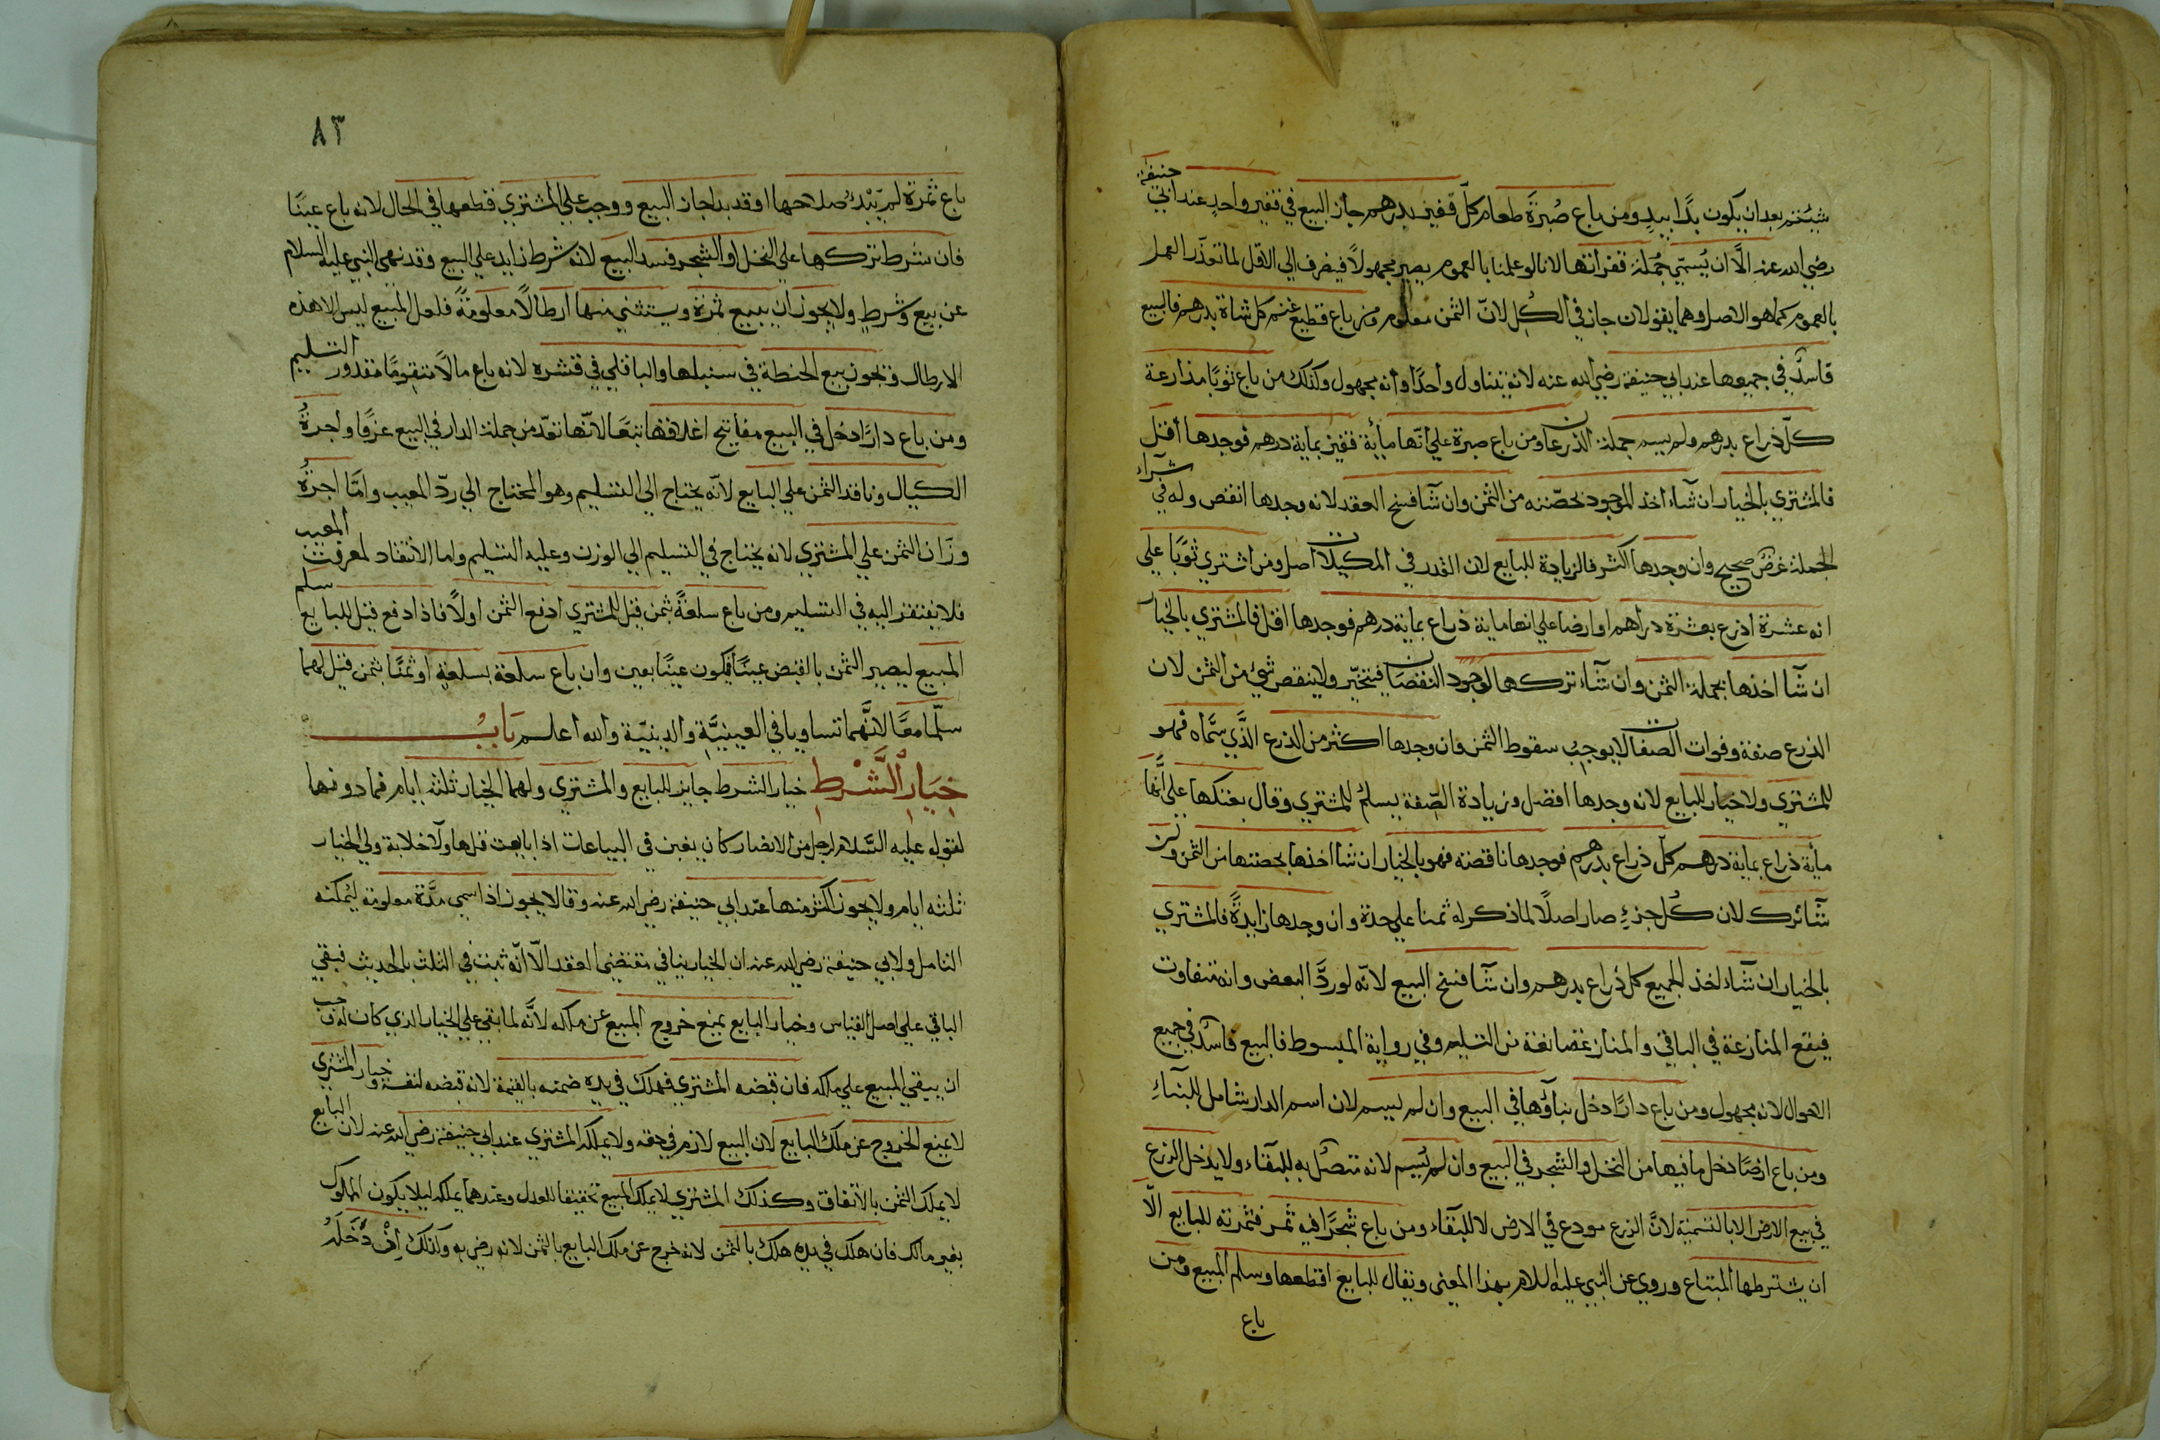 شئتم بعد ان يكون يدًا بيدٍ ومن باع صُبرَةَ طعام كلّ قفيز بدرهم جاز البيع في قفيز واحدٍ عند ابي حنيفة
رضي الله عنه الاَّ ان يُسمّي جُملة قفزانها لانا لو علمنا بالعموم يصير مجهولاً فيصرف الي الاقل لما تعذّر العمل
بالعموم كما هو الاصل وهما يقولان جاز في الكُل لانّ الثمن معلوم ومن باع قطيع غنم كل شاة بدرهم فالبيع
فاسدٌ في جميعها عند ابي حنيفة رضي الله عنه لانه يتناول واحدًا وانه مجهول وكذلك من باع ثوبًا مذارعة
كلّ ذراع بدرهم ولم يسم جملة الذرعان ومن باع صبرة علي انّها مأية قفيز بماية درهم فوجدها أقل
فالمشتري بالخيار ان شآء اخذ الموجود بحصّته من الثمن وان شا فسخ العقد لانه وجدها انقص وله في شرآء
الجملة غرضٌ صحيح وان وجدها اكثر فالزيادة للبايع لان القدر في المكيلات اصل ومن اشتري ثوبًا علي
انه عشرة اذرع بعشرة دراهم او ارضا علي انها ماية ذراع بماية درهم فوجدها اقل فالمشتري بالخيار
ان شآ اخذها بجملة الثمن وان شآء تركها لوجود النقصان فيتخيّر ولا ينقص شئ من الثمن لان
الذرع صفة وفوات الصفات لا يوجب سقوط الثمن وان وجدها اكثر من الذرع الَّذي سمَّاه فهو
للمشتري ولا خيار للبايع لانه وجدها افضل وزيادة الصّفة يسلمُ للمشتري وقال بعتكها علي انَّها
مأية ذراع بماية درهم كلّ ذراع بدرهم فوجدها ناقصة فهو بالخيار ان شا اخذها بحصتها من الثمن وان
شآ ترك لان كُل جزءٍ صار اصلًا لما ذكر له ثمنا علي حدة وان وجدها زايدةً فالمشتري
بالخيار ان شآء اخذ الجميع كل ذراع بدرهم وان شآ فسخ البيع لانّه لو ردَّ البعض وانه متفاوت
فيقع المنازعة في الباقي والمنازعة مانعة من التسليم وفي رواية المبسوط فالبيع فاسدٌ في جميع
الاحوال لانه مجهول ومن باع دارًا دخل بناؤها في البيع وان لم يسم لان اسم الدار شامل للبنآءِ
ومن باع ارضًا دخل ما فيها من النخل والشجر في البيع وان لم يُسم لانه متصلٌ به للبقاء ولا يدخل الزرع
في بيع الارض الا بالتسمية لانَّ الزرع مودع في الارض لا للبقاء ومن باع شجرًا فيه ثمر فثمرته للبايع الاّ
ان يشترطها المبتاع وروي عن النبي عليه السلام بهذا المعنى ويقال للبايع اقطعها وسلم المبيع ومن
باع
٨٣
باع ثمرة لم يَبْدُ صلاحها او قد بدا جاز البيع ووجب علي المشتري قطعها في الحال لانه باع عينًا
فان شرط تركها علي النخل او الشجر فسد البيع لانه شرط زايد علي البيع وقد نهى النبي عليه السلام
عن بيع وشرطٍ ولا يجوز ان يبيع ثمرة ويستثني منها ارطالًا معلومةً فلعل المبيع ليس الا هذه
الارطال ويجوز بيع الحنطة في سنبلها والباقلي في قشره لانه باع مالًا متقومًا مقدور التسليم
ومن باع دارًا دخل في البيع مفاتيح اغلاقها تبعًا لانّها تعدّ من جملة الدار في البيع عرفًا واجرةُ
الكيال وناقد الثمن علي البايع لانّه يحتاج الي التسليم وهو المحتاج الي ردّ المعيب وامَّا اجرةُ
وزّان الثمن علي المشتري لانه يحتاج في التسليم الي الوزن وعليه التسليم واما الانتقاد لمعرفت المعيب
فلا يفتقر اليه في التسليم ومن باع سلعةً بثمن قيل للمشتري ادفع الثمن اولًا فاذا دفع قيل للبايع سلم
المبيع ليصير الثمن بالقبض عينًا فيكون عينًا بعين وان باع سلعة بسلعةٍ او ثمنًا بثمن قيل لهما
سلّما معًا لانَّهما تساويا في العينيَّةِ والدينيّة والله اعلم بَابُ
خِيَارِ الشَّرْطِ خيار الشرط جايز للبايع والمشتري ولهما الخيار ثلثة ايام فما دونها
لقوله عليه السَّلام لرجل من الانصار كان يغبن في البياعات اذا بايعت فقل ها ولا خلابة ولي الخيار
ثلثه ايام ولا يجوز اكثر منها عند ابي حنيفة رضي الله عنه وقالا يجوز اذا سمى مدَّة معلومة ليمكنه
التامل ولابي حنيفة رضي الله عنه ان الخيار ينافي مقتضى العقد الاّ انّه ثبت في الثلث بالحديث فبقي
الباقي علي اصل القياس وخيار البايع يمنع خروج المبيع عن ملكه لانَّه لما بقي علي الخيار الذي كان له وجب
ان يبقي المبيع علي ملكه فان قبضه المشتري فهلك في يده ضمنه بالقيمة لانه قبضه لنفسه وخيار المشتري
لا يمنع الخروج عن ملك البايع لان البيع لازم في حقه ولا يملكه المشتري عند ابي حنيفة رضي الله عنه لان البايع
لا يملك الثمن بالاتفاق وكذلك المشتري لا يملك المبيع تحقيقا للعدل وعندهما يملكه ليلا يكون المملوك
بغير مالك فان هلك في يده هلك بالثمن لانه خرج عن ملك البايع بالثمن لانه رضي به وكذلك اِنْ دَخَلَهُ